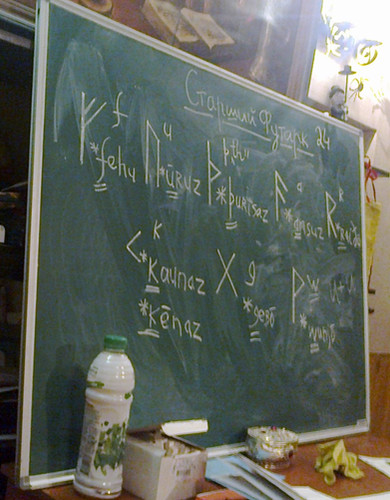 Старший Футарк 24
ᚠ f ᚢ u ᚦ þ ᚨ a ᚱ
*fehu *ūruz *þurisaz *ansuz
ᚲ k ᚷ g ᚹ w
*kaunaz *gebō *wunjō
*kēnaz